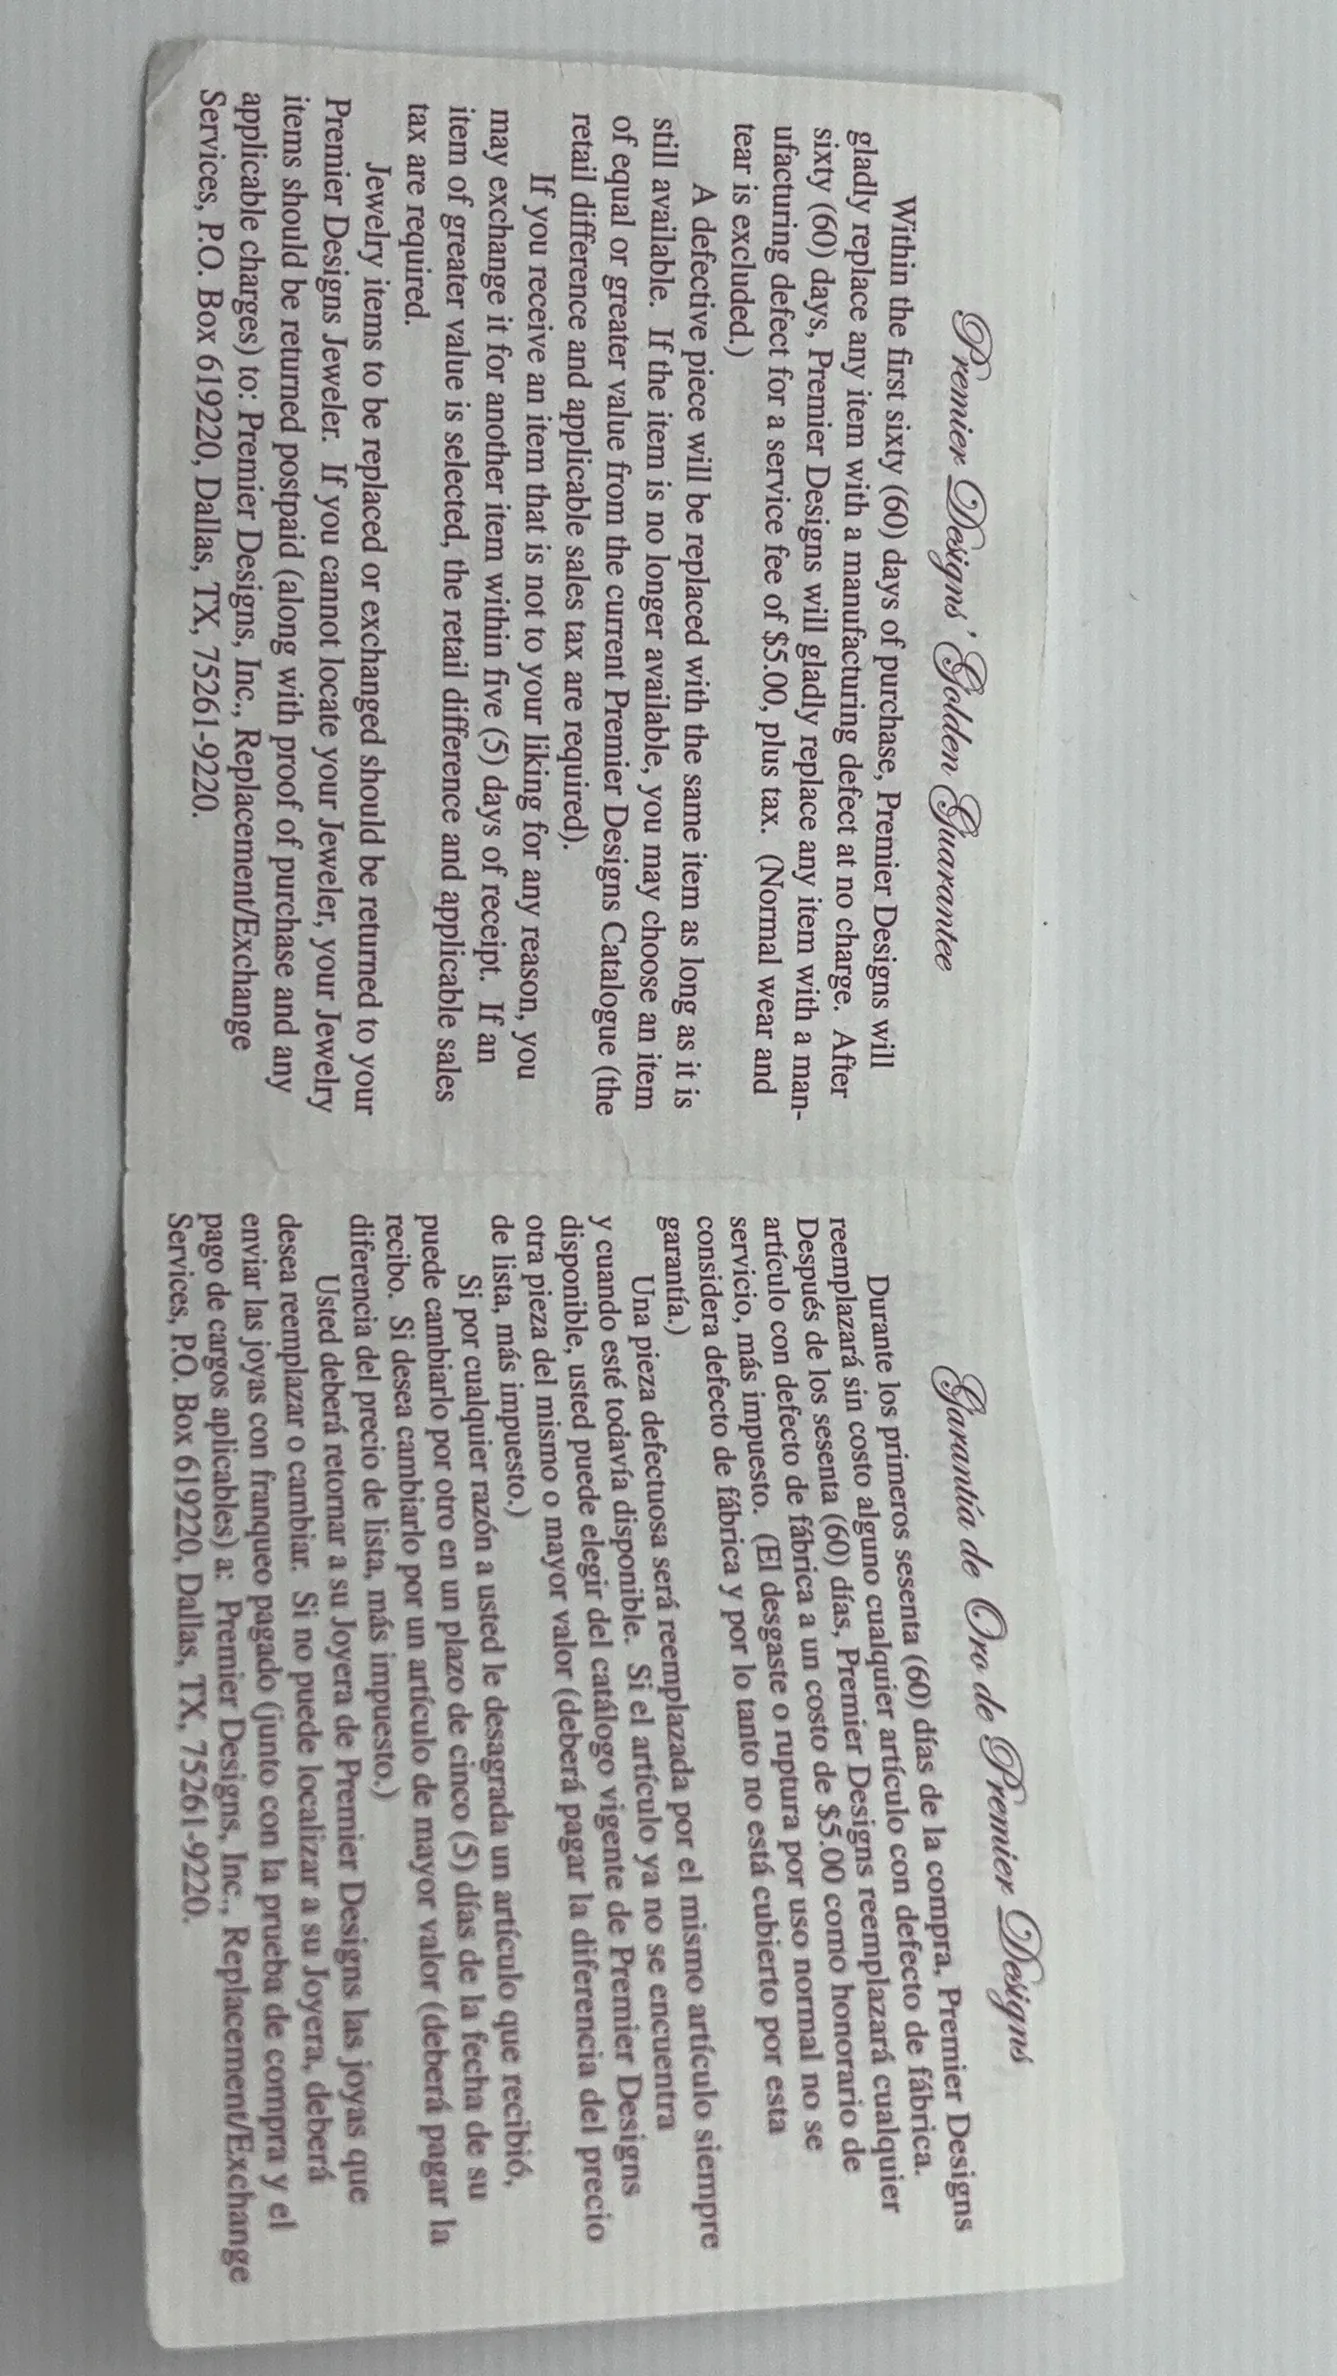 Premier Designs' Golden Guarantee
Within the first sixty (60) days of purchase, Premier Designs will
gladly replace any item with a manufacturing defect at no charge. After
sixty (60) days, Premier Designs will gladly replace any item with a man-
ufacturing defect for a service fee of $5.00, plus tax. (Normal wear and
tear is excluded.)
A defective piece will be replaced with the same item as long as it is
still available. If the item is no longer available, you may choose an item
of equal or greater value from the current Premier Designs Catalogue (the
retail difference and applicable sales tax are required).
If you receive an item that is not to your liking for any reason, you
may exchange it for another item within five (5) days of receipt. If an
item of greater value is selected, the retail difference and applicable sales
tax are required.
Jewelry items to be replaced or exchanged should be returned to your
Premier Designs Jeweler. If you cannot locate your Jeweler, your Jewelry
items should be returned postpaid (along with proof of purchase and any
applicable charges) to: Premier Designs, Inc., Replacement/Exchange
Services, P.O. Box 619220, Dallas, TX, 75261-9220.
Garantía de Oro de Premier Designs
Durante los primeros sesenta (60) días de la compra, Premier Designs
reemplazará sin costo alguno cualquier artículo con defecto de fábrica.
Después de los sesenta (60) días, Premier Designs reemplazará cualquier
artículo con defecto de fábrica a un costo de $5.00 como honorario de
servicio, más impuesto. (El desgaste o ruptura por uso normal no se
considera defecto de fábrica y por lo tanto no está cubierto por esta
garantía.)
Una pieza defectuosa será reemplazada por el mismo artículo siempre
y cuando esté todavía disponible. Si el artículo ya no se encuentra
disponible, usted puede elegir del catálogo vigente de Premier Designs
otra pieza del mismo o mayor valor (deberá pagar la diferencia del precio
de lista, más impuesto.)
Si por cualquier razón a usted le desagrada un artículo que recibió,
puede cambiarlo por otro en un plazo de cinco (5) días de la fecha de su
recibo. Si desea cambiarlo por un artículo de mayor valor (deberá pagar la
diferencia del precio de lista, más impuesto.)
Usted deberá retornar a su Joyera de Premier Designs las joyas que
desea reemplazar o cambiar. Si no puede localizar a su Joyera, deberá
enviar las joyas con franqueo pagado (junto con la prueba de compra y el
pago de cargos aplicables) a: Premier Designs, Inc., Replacement/Exchange
Services, P.O. Box 619220, Dallas, TX, 75261-9220.